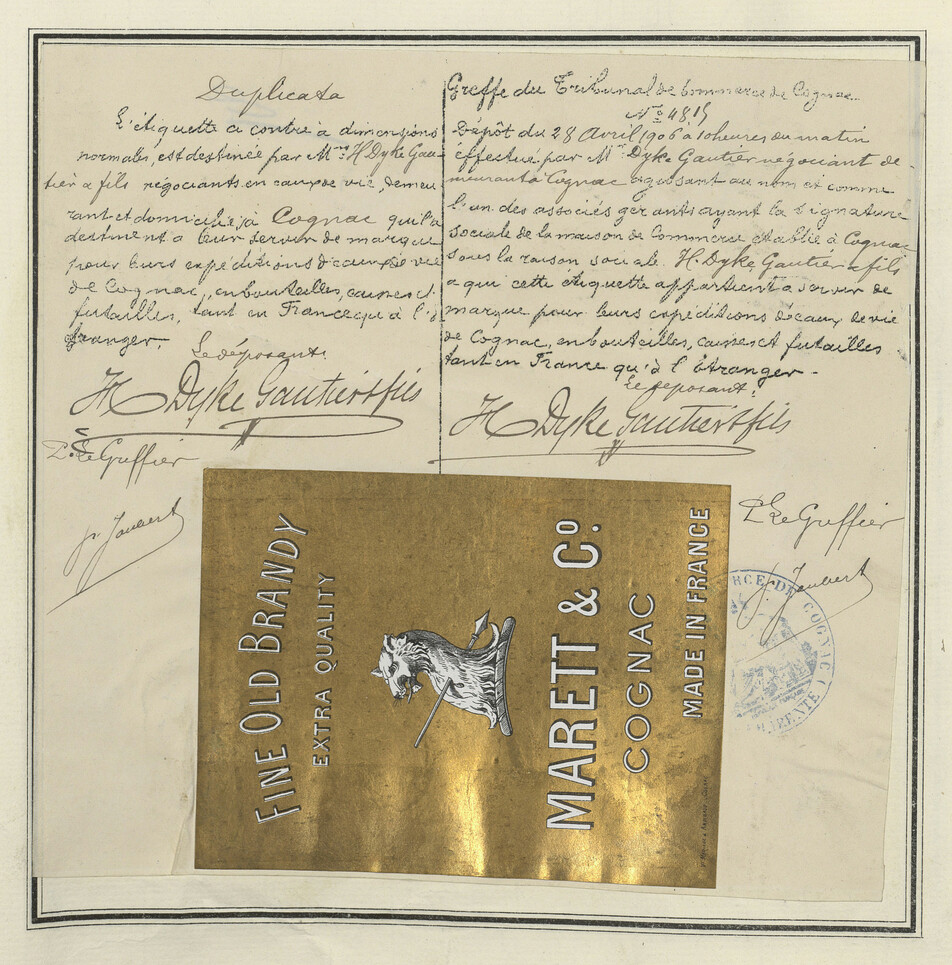 Duplicata
L'étiquette ci contre à dimensions
normales, est destinée par Mrs H Dyke Gau-
tier & fils négociants en eaux de vie, demeu
rant et domiciliés à Cognac qui l'a
destinent à leur servir de marque
pour leurs expéditions d'eaux de vie
de Cognac, en bouteilles, caisses et
futailles, tant en France qu'à l'é
tranger.
Le déposant,
H Dyke Gautier & fils
Le Greffier
Greffe du Tribunal de Commerce de Cognac
No 4815
Dépôt du 28 Avril 1906 à 10 heures du matin
effectué par Mr Dyke Gautier négociant de-
meurant à Cognac agissant au nom et comme
l'un des associés gérants ayant la signature
sociale de la maison de Commerce établie à Cognac
sous la raison sociale H. Dyke Gautier & fils
à qui cette étiquette appartient à servir de
marque pour leurs expéditions d'eaux de vie
de Cognac, en bouteilles, caisses et futailles
tant en France qu'à l'étranger.
Le déposant,
H Dyke Gautier & fils
Le Greffier
FINE OLD BRANDY
EXTRA QUALITY
MARETT & Co.
COGNAC
MADE IN FRANCE
DE COGNAC